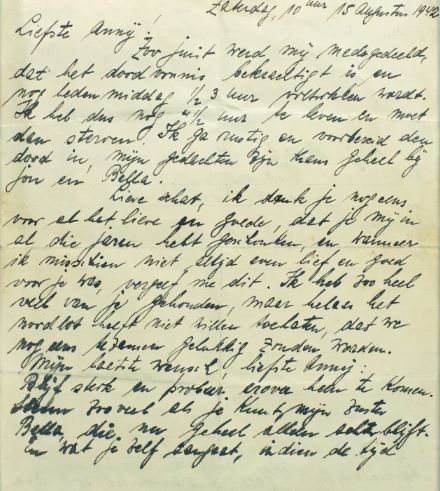 Zaterdag, 10 uur 15 Augustus 1942
Liefste Anny!
Zoo juist werd mij medegedeeld,
dat het doodvonnis bekrachtigt is en
nog heden middag 1/2 3 uur voltrokken wordt.
Ik heb dus nog 4 1/2 uur te leven en moet
dan sterven. Ik ga rustig en voorbereid den
dood in, mijn gedachten zijn thans geheel bij
jou en Bella.
Lieve schat, ik dank je nogeens
voor al het lieve en goede, dat je mij in
al die jaren hebt geschonken, en wanneer
ik misschien niet altijd even lief en goed
voor je was, vergeef me dit. Ik heb zoo heel
veel van je gehouden, maar helaas het
noodlot heeft niet willen toelaten, dat we
nog eens tezamen gelukkig zouden worden.
Mijn laatste wensch, liefste Anny:
Blijf sterk en probeer erover heen te komen.
Steun zooveel als je kunt, mijn zuster
Bella die nu geheel alleen achterblijft.
En wat je zelf aangaat, indien de tijd